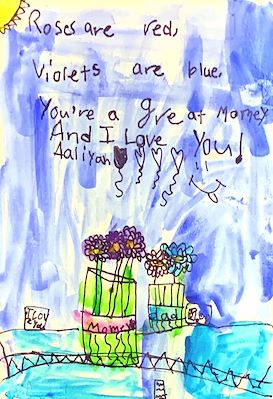 Roses are red,
Violets are blue.
You're a great Momey
And I Love You!
Aaliyah
Momey
dad